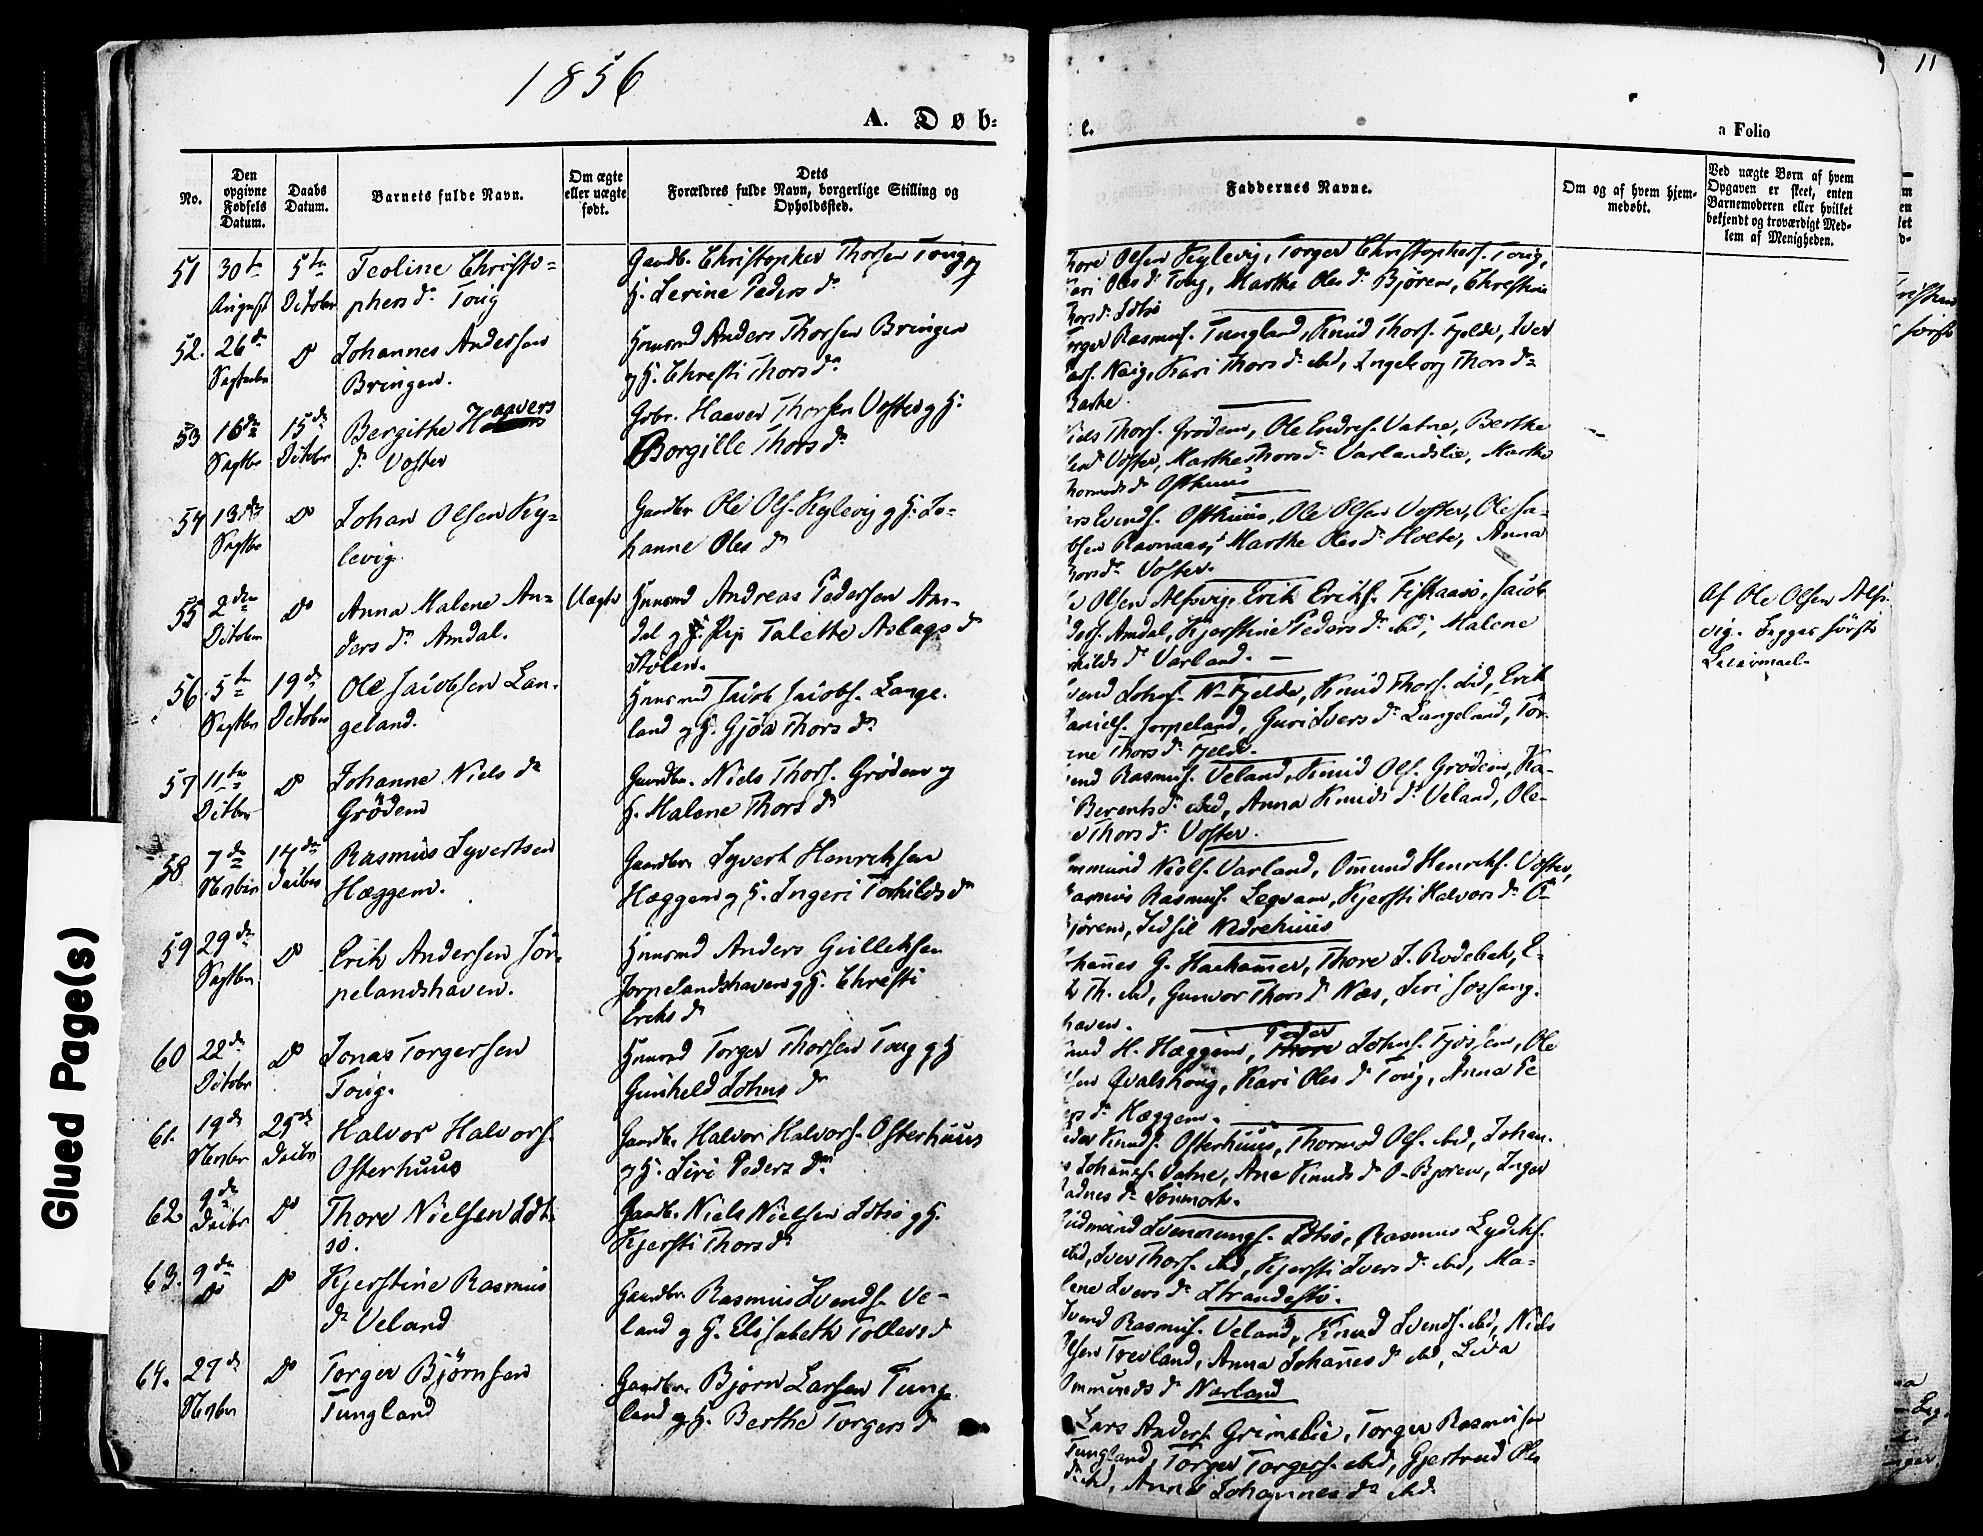 1856
A. Døb=
e.
a Folio
11
No.
Den opgivne Fødsels Datum.
Daabs Datum.
Barnets fulde Navn.
Om ægte eller uægte født.
Dets Forældres fulde Navn, borgerlige Stilling og Opholdssted.
Faddernes Navne.
Om og af hvem hjem-medøbt.
Ved uægte Børn af hvem Opgaven er skeet, enten Barnemoderen eller hvilket bekjendt og troværdigt Med-lem af Menigheden.
51 30te August 5te October
Teoline Christo=
phers dr Toug
Gaardb. Christopher Thorsen Toug og
H. Serine Peders dr
Thore Olsen Kylevig, Torger Christophers. Toug,
Kari Oles dr Toug, Marthe Oles dr Bjøren, Christine
Thors dr Idsø
52. 26de Septembr Do
Johannes Andersen
Bringen.
Huusmd Anders Thorsen Bringen
og H. Christi Thors dr
Torger Rasmus. Tungland, Knud Thors. Fjelde, Iver
Lars. Naig, Kari Thors dr ibd, Ingeborg Thors dr
Barke.
53 16de Septbr 15de Octobr
Bergithe Haavers
dr Voster
Grbr. Haaver Thorsen Voster og H.
Borgille Thors dr
Niels Thors. Grødem, Ole Endres. Vatne, Berthe
Voster, Marthe Thors dr Varlandslie, Marthe
Thormods dr Osthuus
54 13de Septbr Do
Johan Olsen Ky=
levig.
Gaardbr Ole Ols. Kylevig og H. Jo-
hanne Oles dr
Lars Svends. Osthuus, Ole Olsen Voster, Ole Ja-
obsen Ravnaas, Marthe Oles dr Holte, Anna
Thors dr Voster.
55 2den Octobr Do
Anna Malene An-
ders dr Amdal.
Uægte
Huusmd Andreas Pedersen Am-
dal og Pige Talette Aslags dr
Stølen.
Ole Olsen Alsvig, Erik Eriks. Fiskaaen, Jacob
Peders. Amdal, Kjerstine Peders dr ibd, Malene
Torkilds dr Varland.
Af Ole Olsen Als-
vig. Begges første
Leiermaal.
56. 5te Septbr 19de October
Ole Jacobsen Lan-
geland.
Huusmd Jacob Jacobs. Lange-
land og H. Gjøa Thors dr
Svend Johns. N-Fjelde, Knud Thors. ibd, Erik
Daniels. Jørpeland, Guri Ivers dr Langeland, Tor-
ine Thors dr Fjelde.
57 11te Octobr Do
Johanne Niels dr
Grödem
Gaardbr. Niels Thors. Grödem og
H. Malene Thors dr
Svend Rasmus. Veland, Knud Ols. Grødem, Ka-
ri Berents dr ibd, Anna Knuds dr Veland, Ole-
ne Thors dr Voster.
58 7de Novbr 14de Decbr
Rasmus Syvertsen
Hæggem.
Gaardbr. Syvert Henriksen
Hæggem og H. Ingeri Torkilds dr
Ommund Niels. Varland, Omund Henriks. Voster,
Rasmus Rasmus. Leqvam, Kjersti Halvors dr Ø-
Bjøren, Sidsel Nedrehuus
59 29de Septbr Do
Erik Andersen Jør-
pelandshaven.
Huusmd Anders Gulleksen
Jørpelandshaven og H. Christi
Eriks dr
Johanes G. Hauhamer, Thore J. Rødebek, E-
rik Th. ibd, Gunvor Thors dr Næs, Siri Jøssang-
haven.
60 22de Octobr Do
Jonas Torgersen
Toug.
Huusmd Torger Thorsen Toug og H
Gunhild Johns dr
Knud H. Hæggem, Peder Johns. Tjøstem, Ole
Olsen Qvalshoug, Kari Oles dr Toug, Anna Pe
ders dr Hæggem.
61. 19de Novbr 25de Decbr
Halvor Halvors.
Osterhuus
Gaardbr. Halvor Halvors. Osterhuus
og H. Siri Peders dr
Peder Knuds. Osterhuus, Thormod Ols. ibd, Johan-
nes Johanes. Vatne, Ane Knuds dr Ø-Bjøren, Inger
Aadnes dr Sønmork.
62. 9de Decbr Do
Thore Nielsen Idt-
sø.
Gaardbr. Niels Nielsen Idtsø og H.
Kjersti Thors dr
Gudmund Svenungs. Idtsø, Rasmus Lydiks.
ibd, Iver Thors. ibd, Kjersti Ivers dr ibd, Ma-
lene Ivers dr Strandestø.
63. 9de Do Do
Kjerstine Rasmus
dr Veland
Gaardbr. Rasmus Svends. Ve-
land og H. Elisabeth Tollevs dr
Svend Rasmus. Veland, Knud Svends. ibd, Niels
Olsen Trevland, Anna Johanes dr ibd, Siva
Ommunds dr Nærland
64. 27de Novbr Do
Torger Björnsen
Tungland
Gaardbr. Bjørn Larsen Tung-
land og H. Berthe Torgers dr
Lars Anders. Grimslie, Torger Rasmusen
Tungland, Torger Torgers. ibd, Gjertrud Oles
dr ibd, Anna Johannes dr ibd.
Glued Page(s)